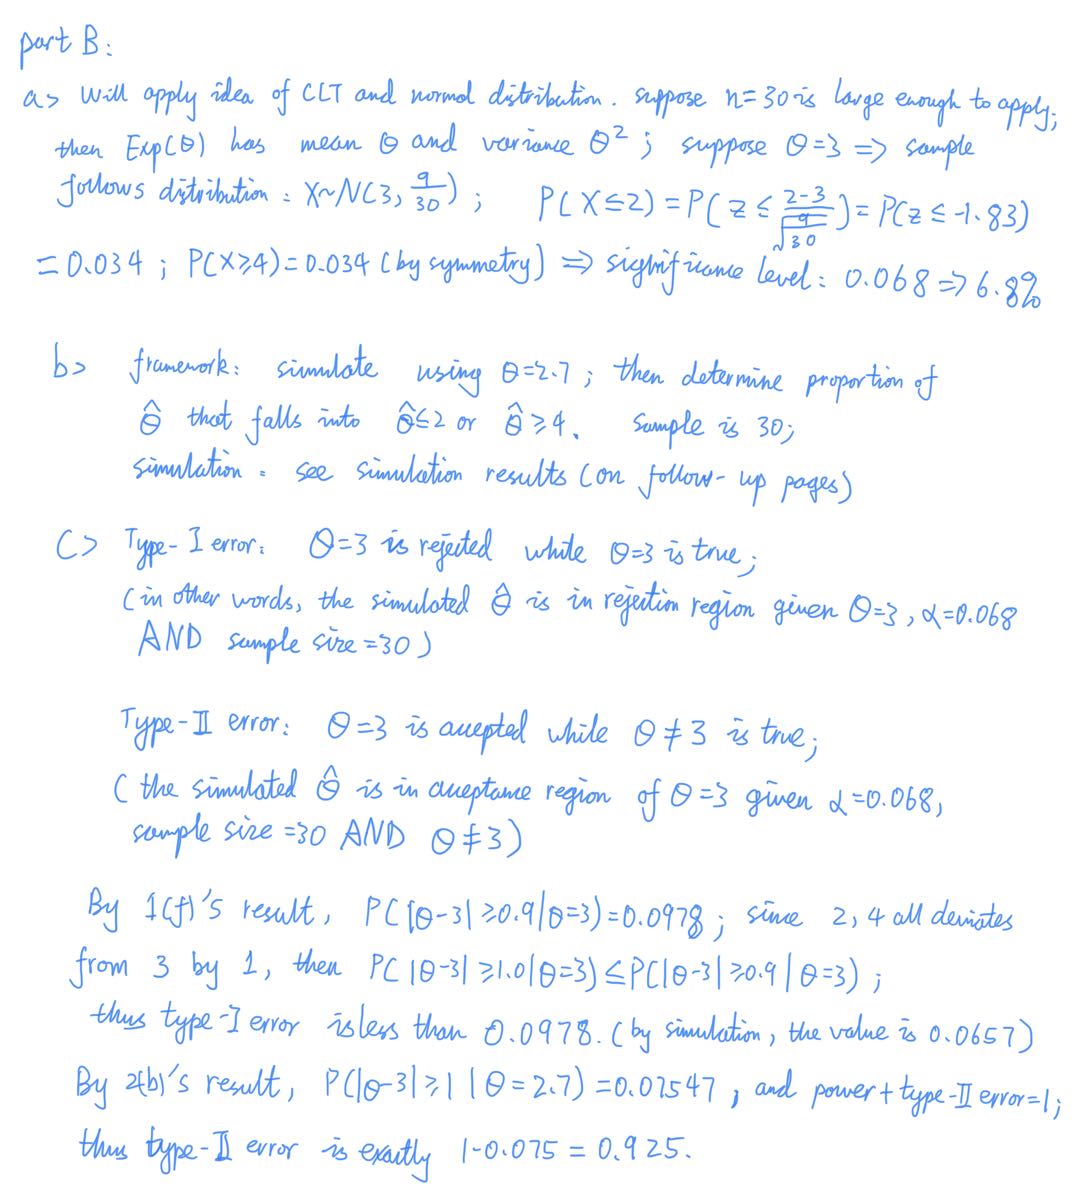 part B:
a> Will apply idea of CLT and normal distribution. suppose n=30 is large enough to apply;
then Exp(θ) has mean θ and variance θ²; suppose θ=3 => sample
follows distribution: X~N(3, 9/30); P(X≤2)=P(z ≤ (2-3)/√(9/30))=P(z ≤ -1.83)
=0.034; P(X≥4)=0.034 (by symmetry) => significance level: 0.068 => 6.8%
b> framework: simulate using θ=2.7; then determine proportion of
θ̂ that falls into θ̂≤2 or θ̂≥4. Sample is 30;
simulation: see simulation results (on follow-up pages)
C> Type-I error: θ=3 is rejected while θ=3 is true;
(in other words, the simulated θ̂ is in rejection region given θ=3, α=0.068
AND sample size=30)
Type-II error: θ=3 is accepted while θ≠3 is true;
(the simulated θ̂ is in acceptance region of θ=3 given α=0.068,
sample size=30 AND θ≠3)
By 1(f)'s result, P(|θ-3|≥0.9|θ=3)=0.0978; since 2,4 all deviates
from 3 by 1, then P(|θ-3|≥1.0|θ=3)≤P(|θ-3|≥0.9|θ=3);
thus type-I error is less than 0.0978. (by simulation, the value is 0.0657)
By 2(b)'s result, P(|θ-3|≥1|θ=2.7)=0.07547, and power+type-II error=1;
thus type-II error is exactly 1-0.075=0.925.